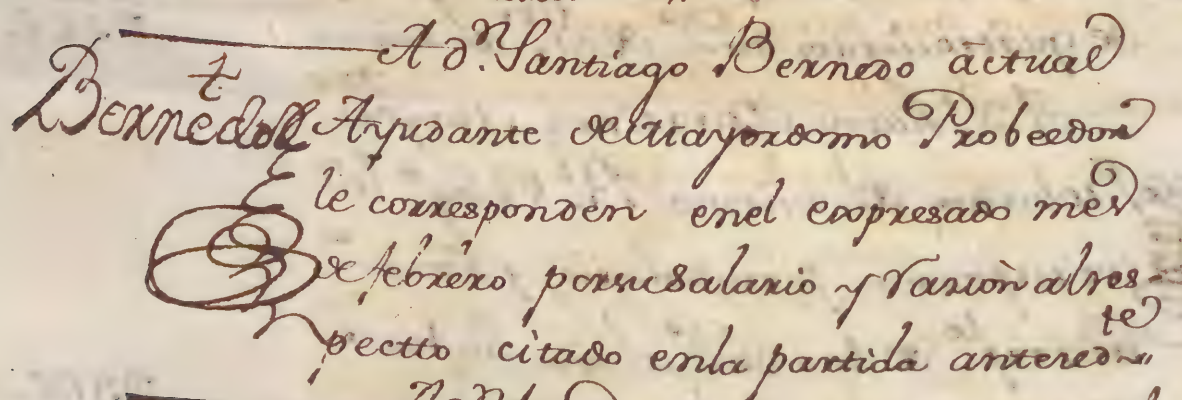 A d.n Santiago Bernedo actual
Bernedo Ayudante de Mayordomo Probeedor
le corresponden enel expresado mes
de febrero porsu Salario y Racion al res-
pectto citado enla partida anteced.te